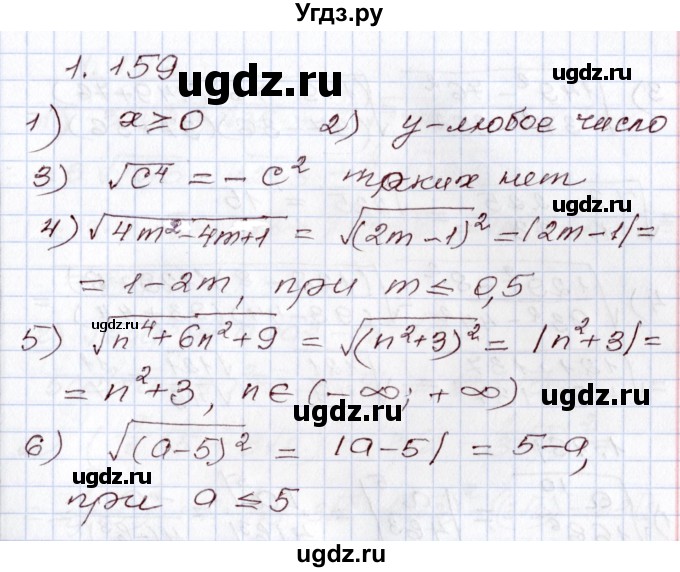 Угдз.ру
1. 159
ugdz.ru ugdz.ru
1) x ≥ 0 2) y - любое число
3) √c⁴ = - c² таких нет
ugdz.ru
4) √4m² - 4m + 1 = √(2m - 1)² = |2m - 1| =
= 1 - 2m, при m ≤ 0,5
ugdz.ru
5) √n⁴ + 6n² + 9 = √(n² + 3)² = |n² + 3| =
= n² + 3, n ∈ (-∞; +∞)
ugdz.ru
6) √(a - 5)² = |a - 5| = 5 - a,
ugdz.ru
при a ≤ 5
ugdz.ru